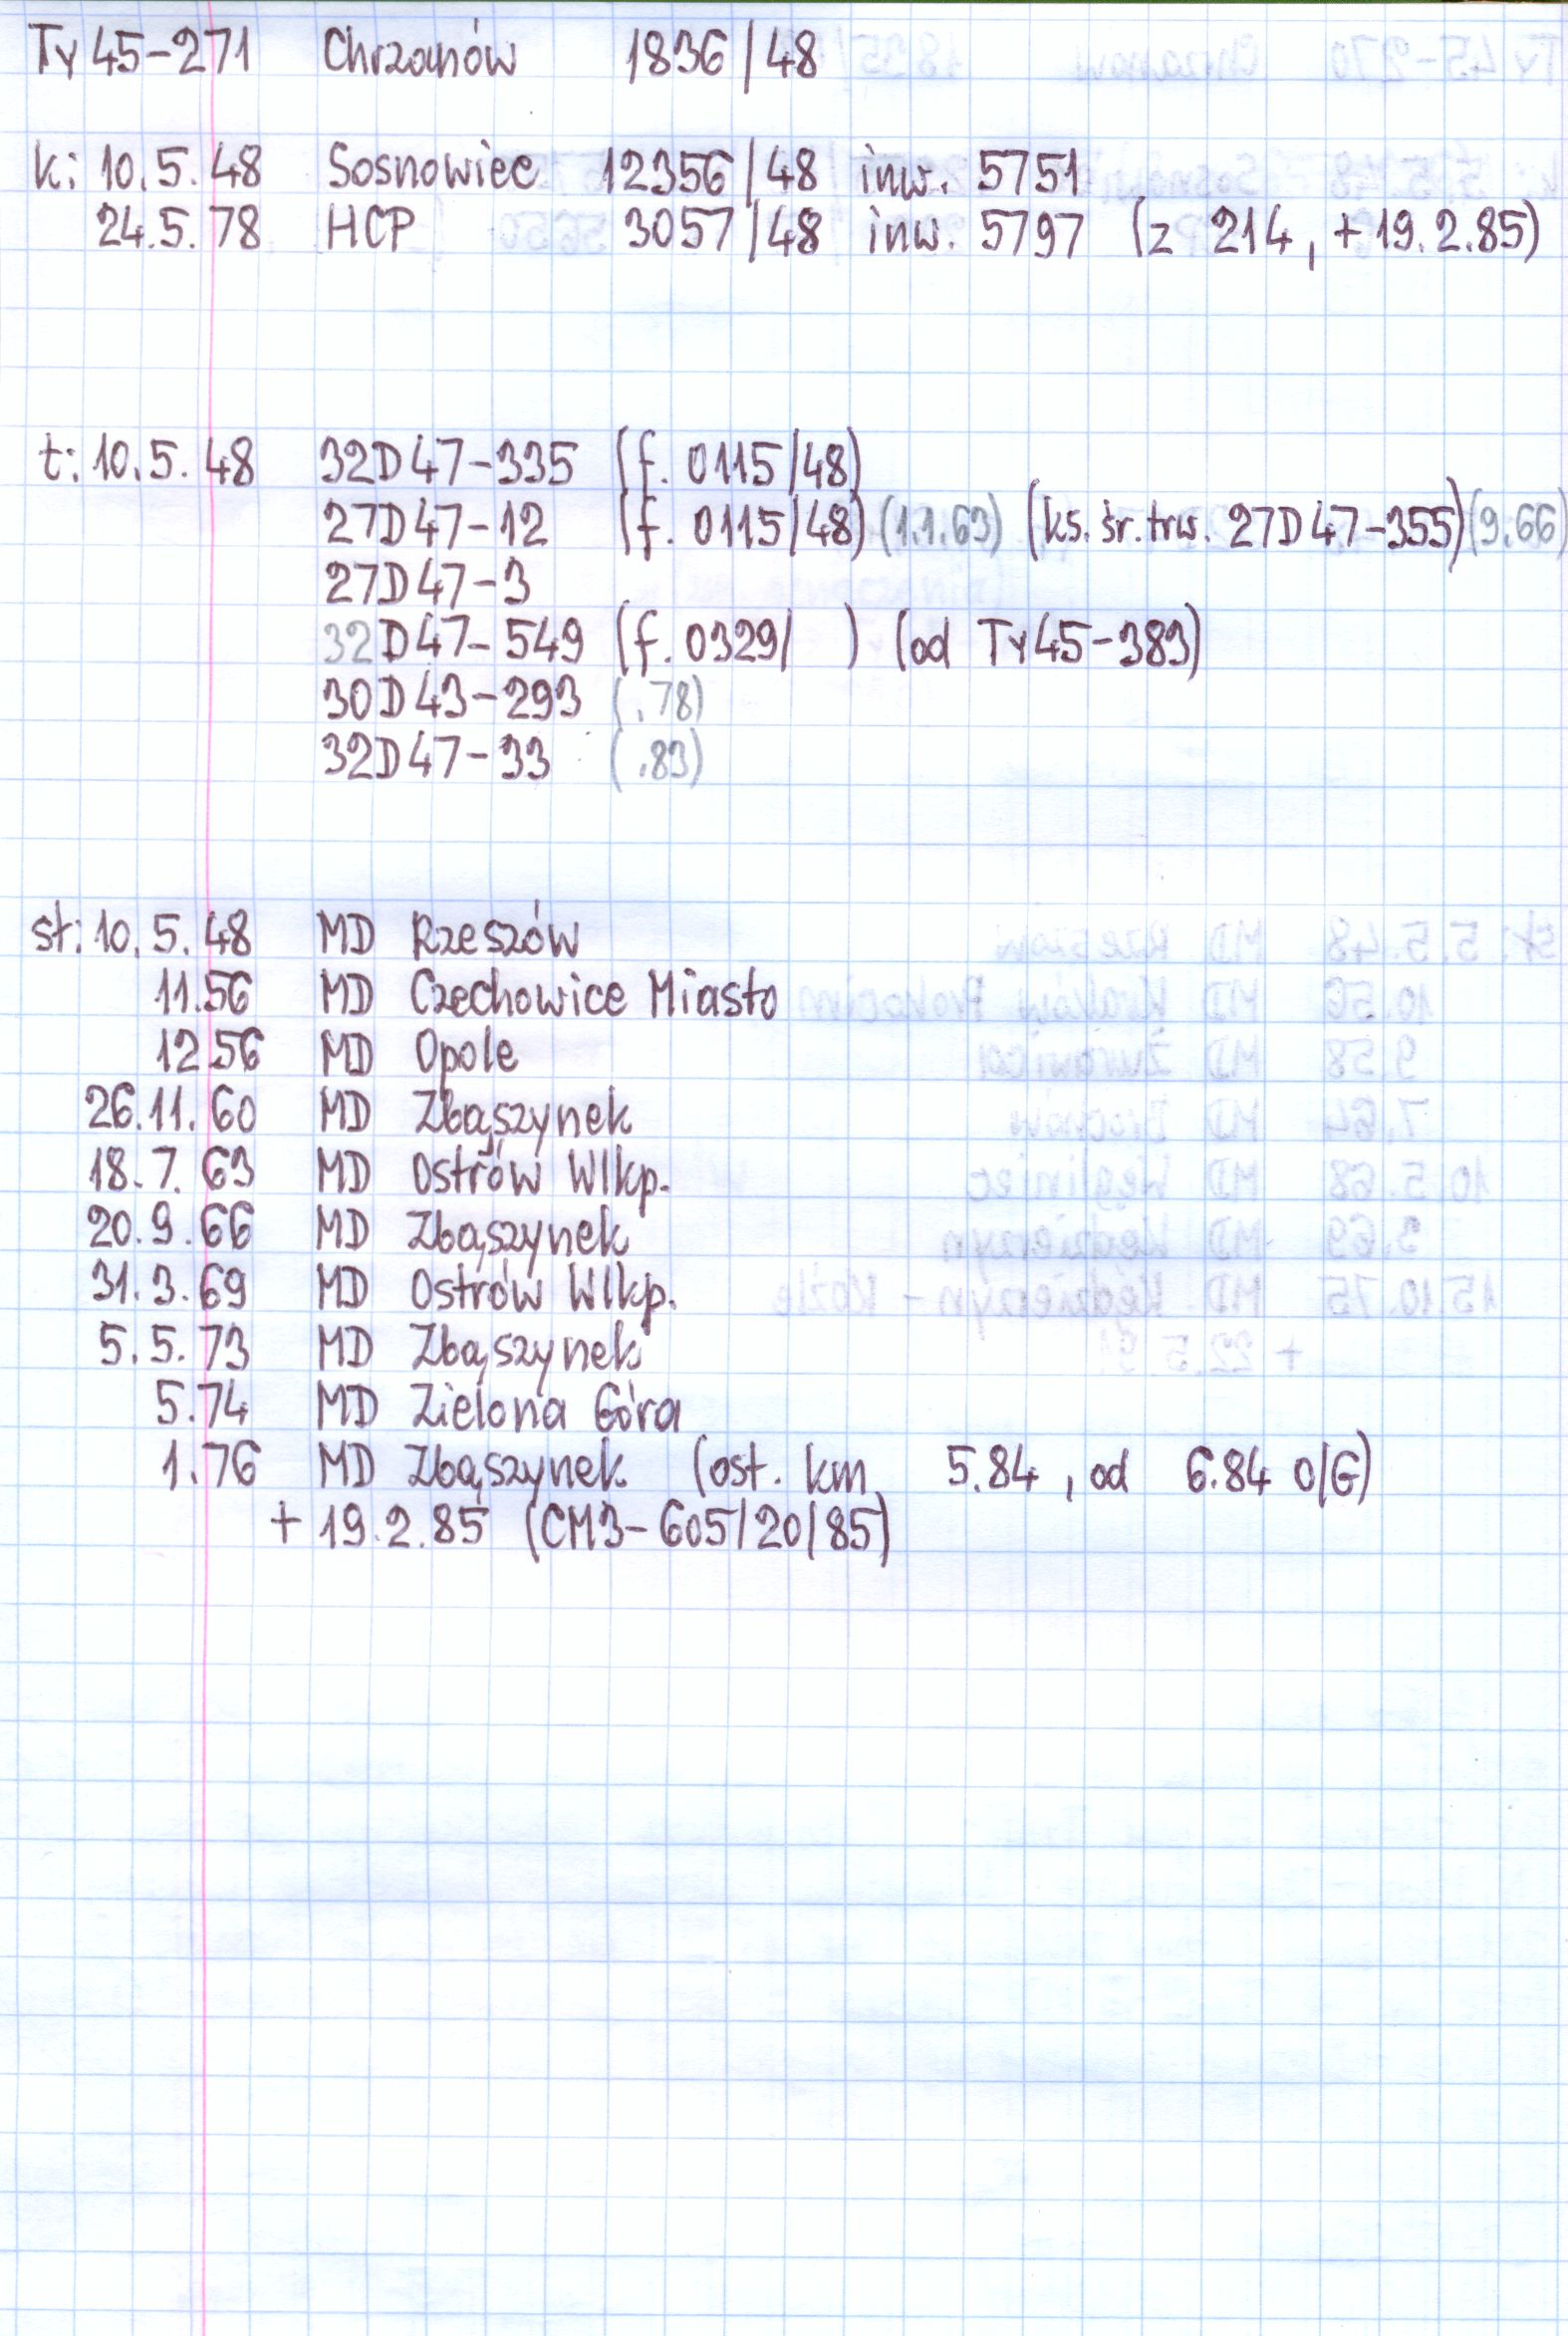 Ty45-271 Chrzanów 1836/48
k: 10.5.48 Sosnowiec 12356/48 inw. 5751
24.5.78 HCP 3057/48 inw. 5797 (z 214, +19.2.85)
t: 10.5.48 32D47-335 (f. 0115/48)
27D47-12 (f. 0115/48) (1.1.63) (ks. śr. trw. 27D47-355) (9.66)
27D47-3
32D47-549 (f. 0329/ ) (od Ty45-383)
30D43-293 ( .78)
32D47-33 ( .83)
st: 10.5.48 MD Rzeszów
11.56 MD Czechowice Miasto
12.56 MD Opole
26.11.60 MD Zbąszynek
18.7.63 MD Ostrów Wlkp.
20.9.66 MD Zbąszynek
31.3.69 MD Ostrów Wlkp.
5.5.73 MD Zbąszynek
5.74 MD Zielona Góra
1.76 MD Zbąszynek (ost. km 5.84, od 6.84 O/G)
+ 19.2.85 (CM3-605/20/85)